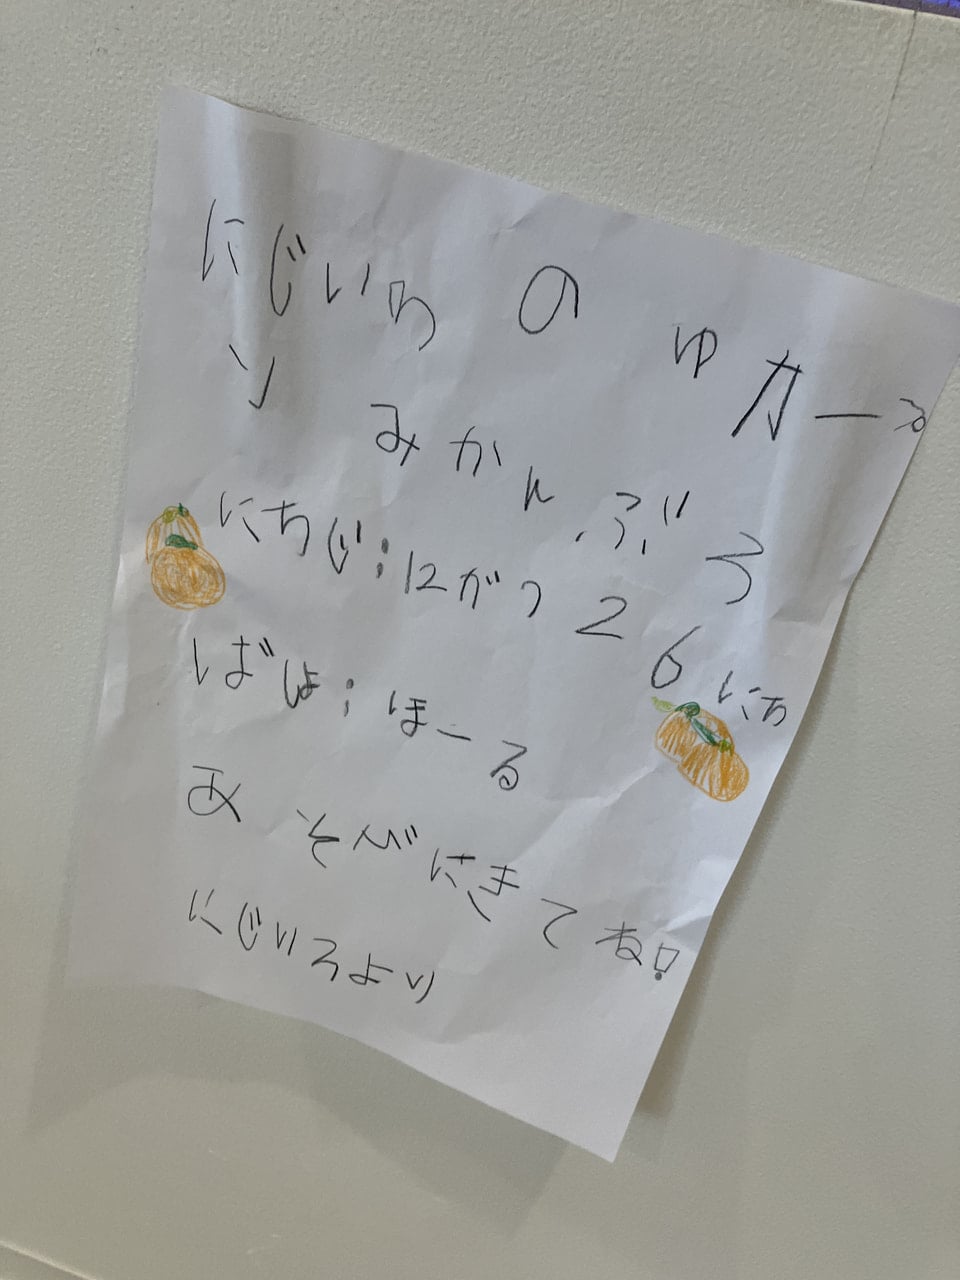 にじいろ の ゆ カーる
ソ みかんぶろ
にちじ:12がつ26にち
ばしょ:ほーる
あそびにきてね!
にじいろより